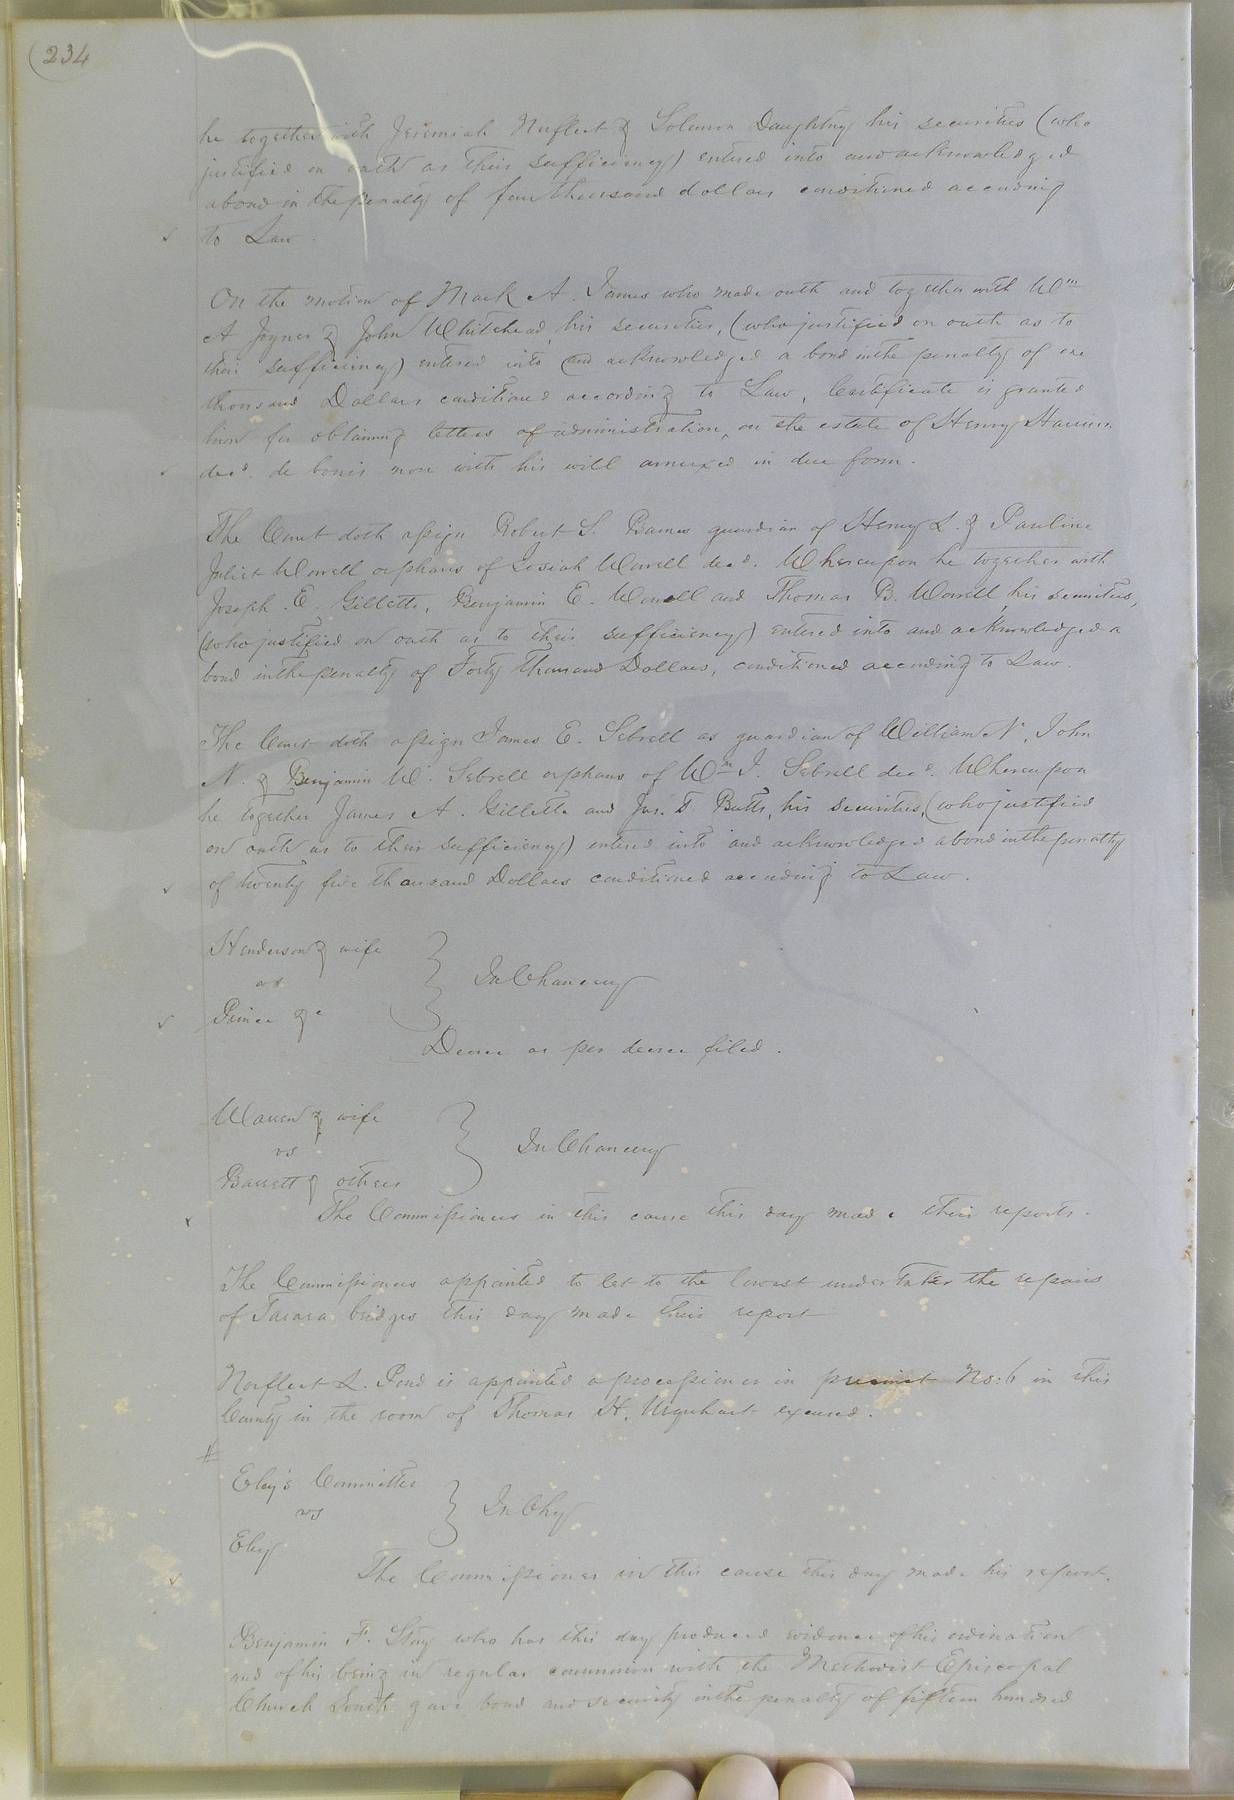 (234
he together with Jeremiah Nurfleet & Solomon Daughtry his securities (who
justified on oath as their sufficiency) entered into and acknowledged
a bond in the penalty of four thousand dollars conditioned according
to Law.
On the motion of Mark A. James who made oath and together with Wm
A Joyner & John Whitehead, his securities, (who justified on oath as to
their sufficiency) entered into and acknowledged a bond in the penalty of one
thousand Dollars conditioned according to Law, Certificate is granted
him for obtaining letters of administration, on the estate of Henry
decd. de bonis non with his will annexed in due form.
The Court doth assign Robert S. Barnes guardian of Henry L. & Pauline
Juliet Worrell orphans of Josiah Worrell decd. Whereupon he together with
Joseph E. Gillette, Benjamin E. Worrell and Thomas B. Worrell, his securities,
(who justified on oath as to their sufficiency) entered into and acknowledged a
bond in the penalty of Forty Thousand Dollars, conditioned according to Law.
The Court doth assign James E. Sebrell as guardian of William N., John
N. & Benjamin W. Sebrell orphans of Wm J. Sebrell decd. Whereupon
he together James A. Gillette and Jas. D Butts, his securities, (who justified
on oath as to their sufficiency) entered into and acknowledged a bond in the penalty
of twenty five thousand Dollars conditioned according to Law.
Henderson & wife
vs
In Chancery
Prince &c
Decree as per decree filed.
Warren & wife
vs
In Chancery
Barrett & others
The Commissioners in this cause this day made their reports.
The Commissioners appointed to let to the lowest undertaker the repairs
of Tarara bridges this day made their report
Norfleet L. Pond is appointed a processioner in precinct No: 6 in this
County in the room of Thomas H. Urquhart excused.
Eley's Committee
vs
In Chy
Eley
The Commissioner in this cause this day made his report.
Benjamin F. Story who has this day produced evidence of his ordination
and of his being in regular communion with the Methodist Episcopal
Church South gave bond and security in the penalty of fifteen hundred